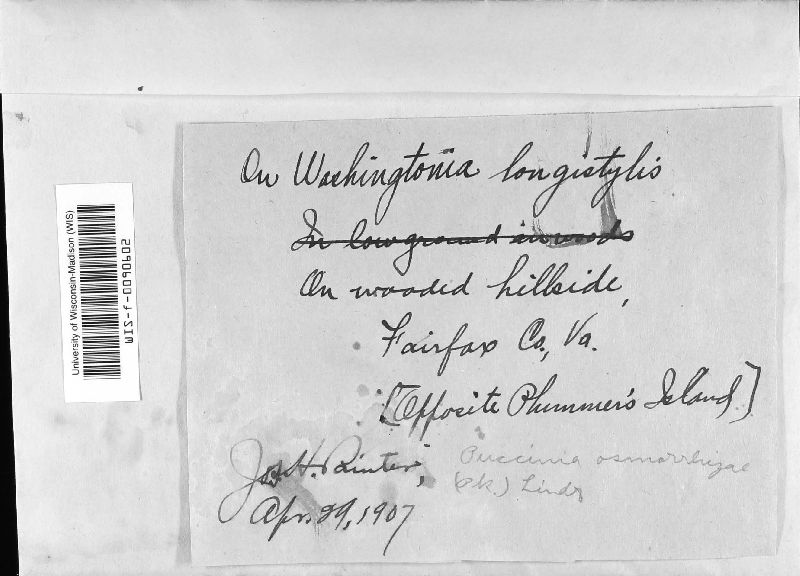 On Washingtonia longistylis
In low ground in woods
On wooded hillside,
Fairfax Co., Va.
[Opposite Plummer's Island]
Jos. H. Painter,
Apr. 29, 1907
Puccinia osmorrhizae
(Pk.) Lindr
University of Wisconsin-Madison (WIS)
WIS-f-0090602